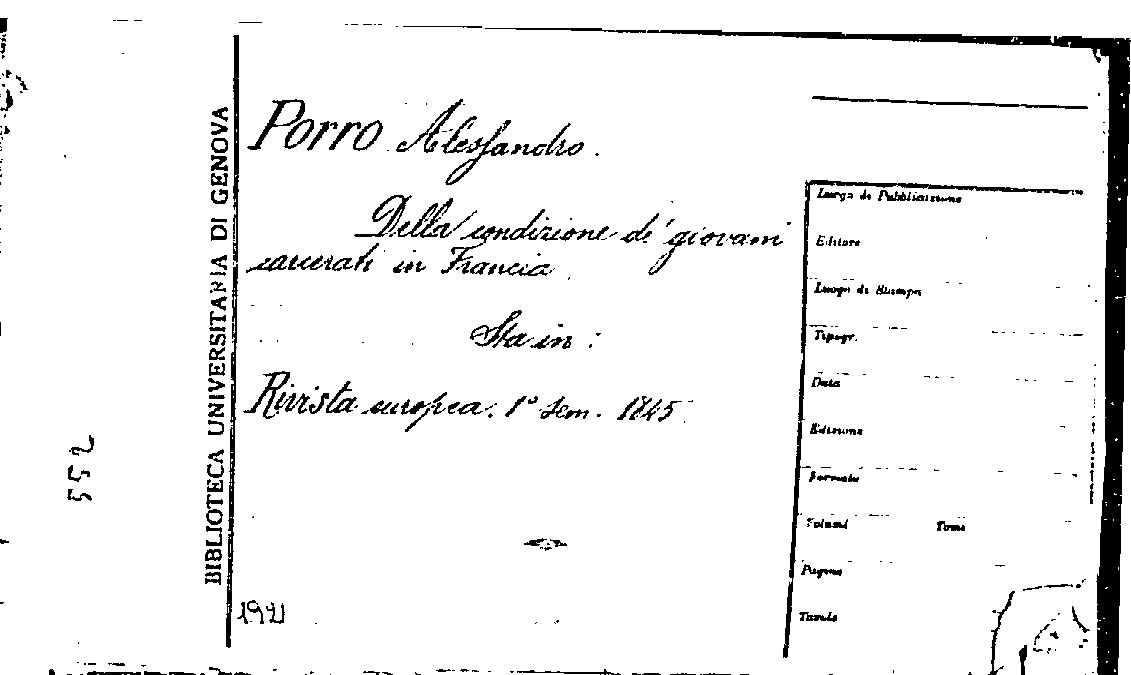 BIBLIOTECA UNIVERSITARIA DI GENOVA
552
Porro Alessandro.
Della condizione de' giovani
carcerati in Francia.
Sta in:
Rivista europea. 1° sem. 1845
1921
Luogo di Pubblicazione
Editore
Luogo di Stampa
Tipogr.
Data
Edizione
Formato
Volumi Tomi
Pagine
Tavole